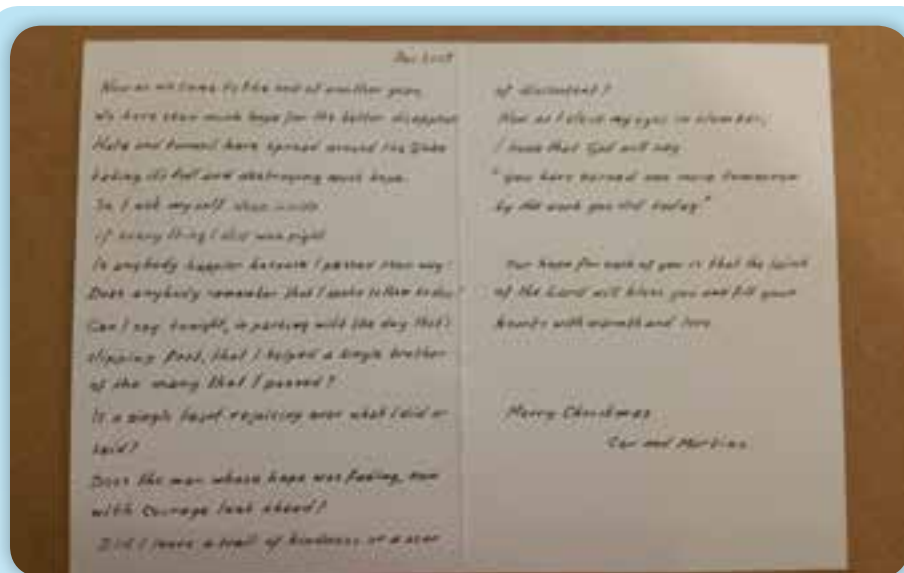 Now as we come to the end of another year,
We have seen much hope for the better disappear
Hate and turmoil have spread around the Globe
taking its toll and destroying much hope.
So I ask myself deep inside
if every thing I did was right
Is anybody happier because I passed their way?
Does anybody remember that I spoke to them today?
Can I say tonight, in parting with the day that's
slipping fast, that I helped a single brother
of the many that I passed?
Is a single heart rejoicing over what I did or
said?
Does the man whose hope was fading, now
with courage look ahead?
Did I leave a trail of kindness or a scar
of discontent?
Now as I close my eyes in slumber,
I hope that God will say
"you have earned one more tomorrow
by the work you did today."
Our hope for each of you is that the
of the Lord will bless you and fill your
hearts with warmth and love
Merry Christmas
and